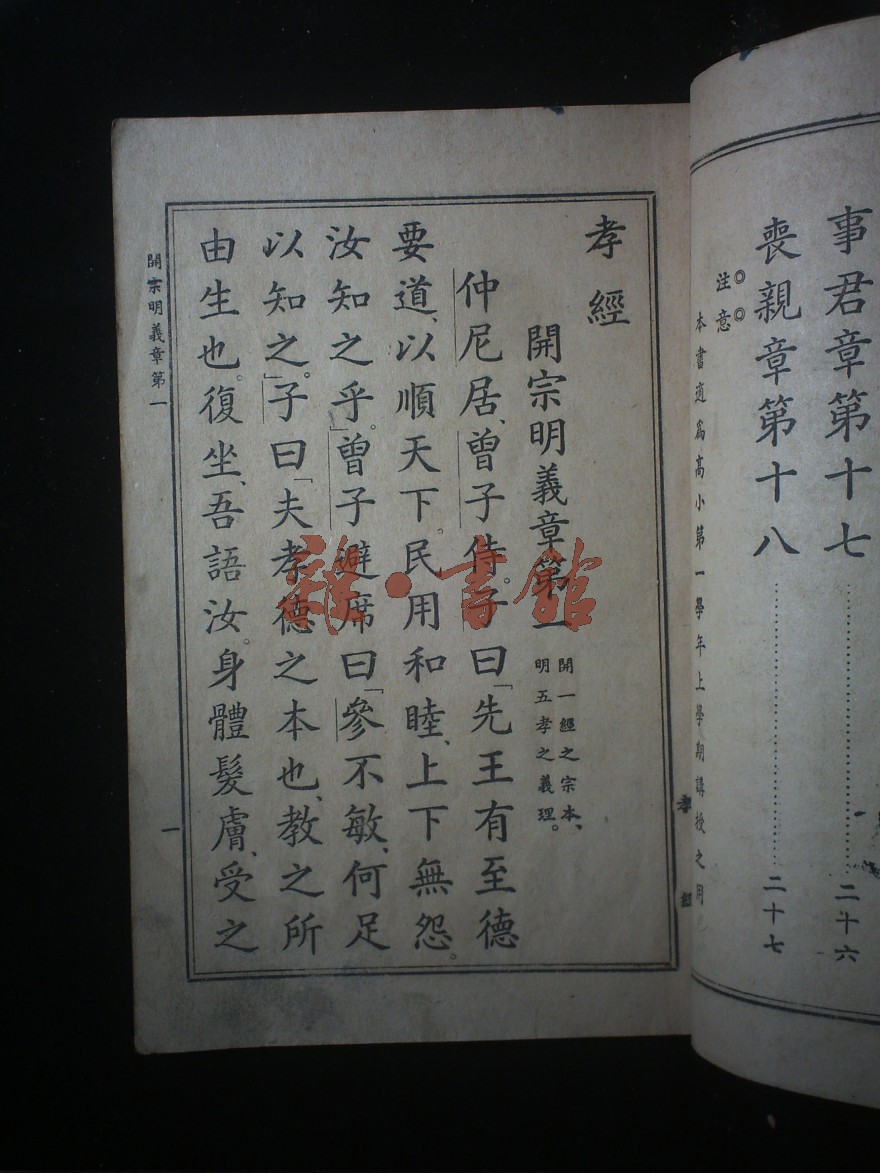 事君章第十七……二十六
喪親章第十八……二十七
◎注◎意
本書適爲高小第一學年上學期講授之用
孝經
孝經
開宗明義章第一
開一經之宗本、
明五孝之義理。
仲尼居、曾子侍。子曰「先王有至德
要道、以順天下。民用和睦、上下無怨。
汝知之乎。」曾子避席曰「參不敏、何足
以知之。」子曰「夫孝德之本也、教之所
由生也。復坐、吾語汝。身體髮膚、受之
開宗明義章第一
一
雜·書館